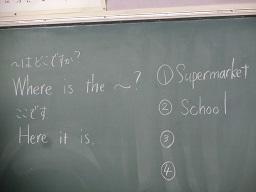 〜はどこですか?
Where is the 〜?
ここです
Here it is.
① Supermarket
② School
③
④